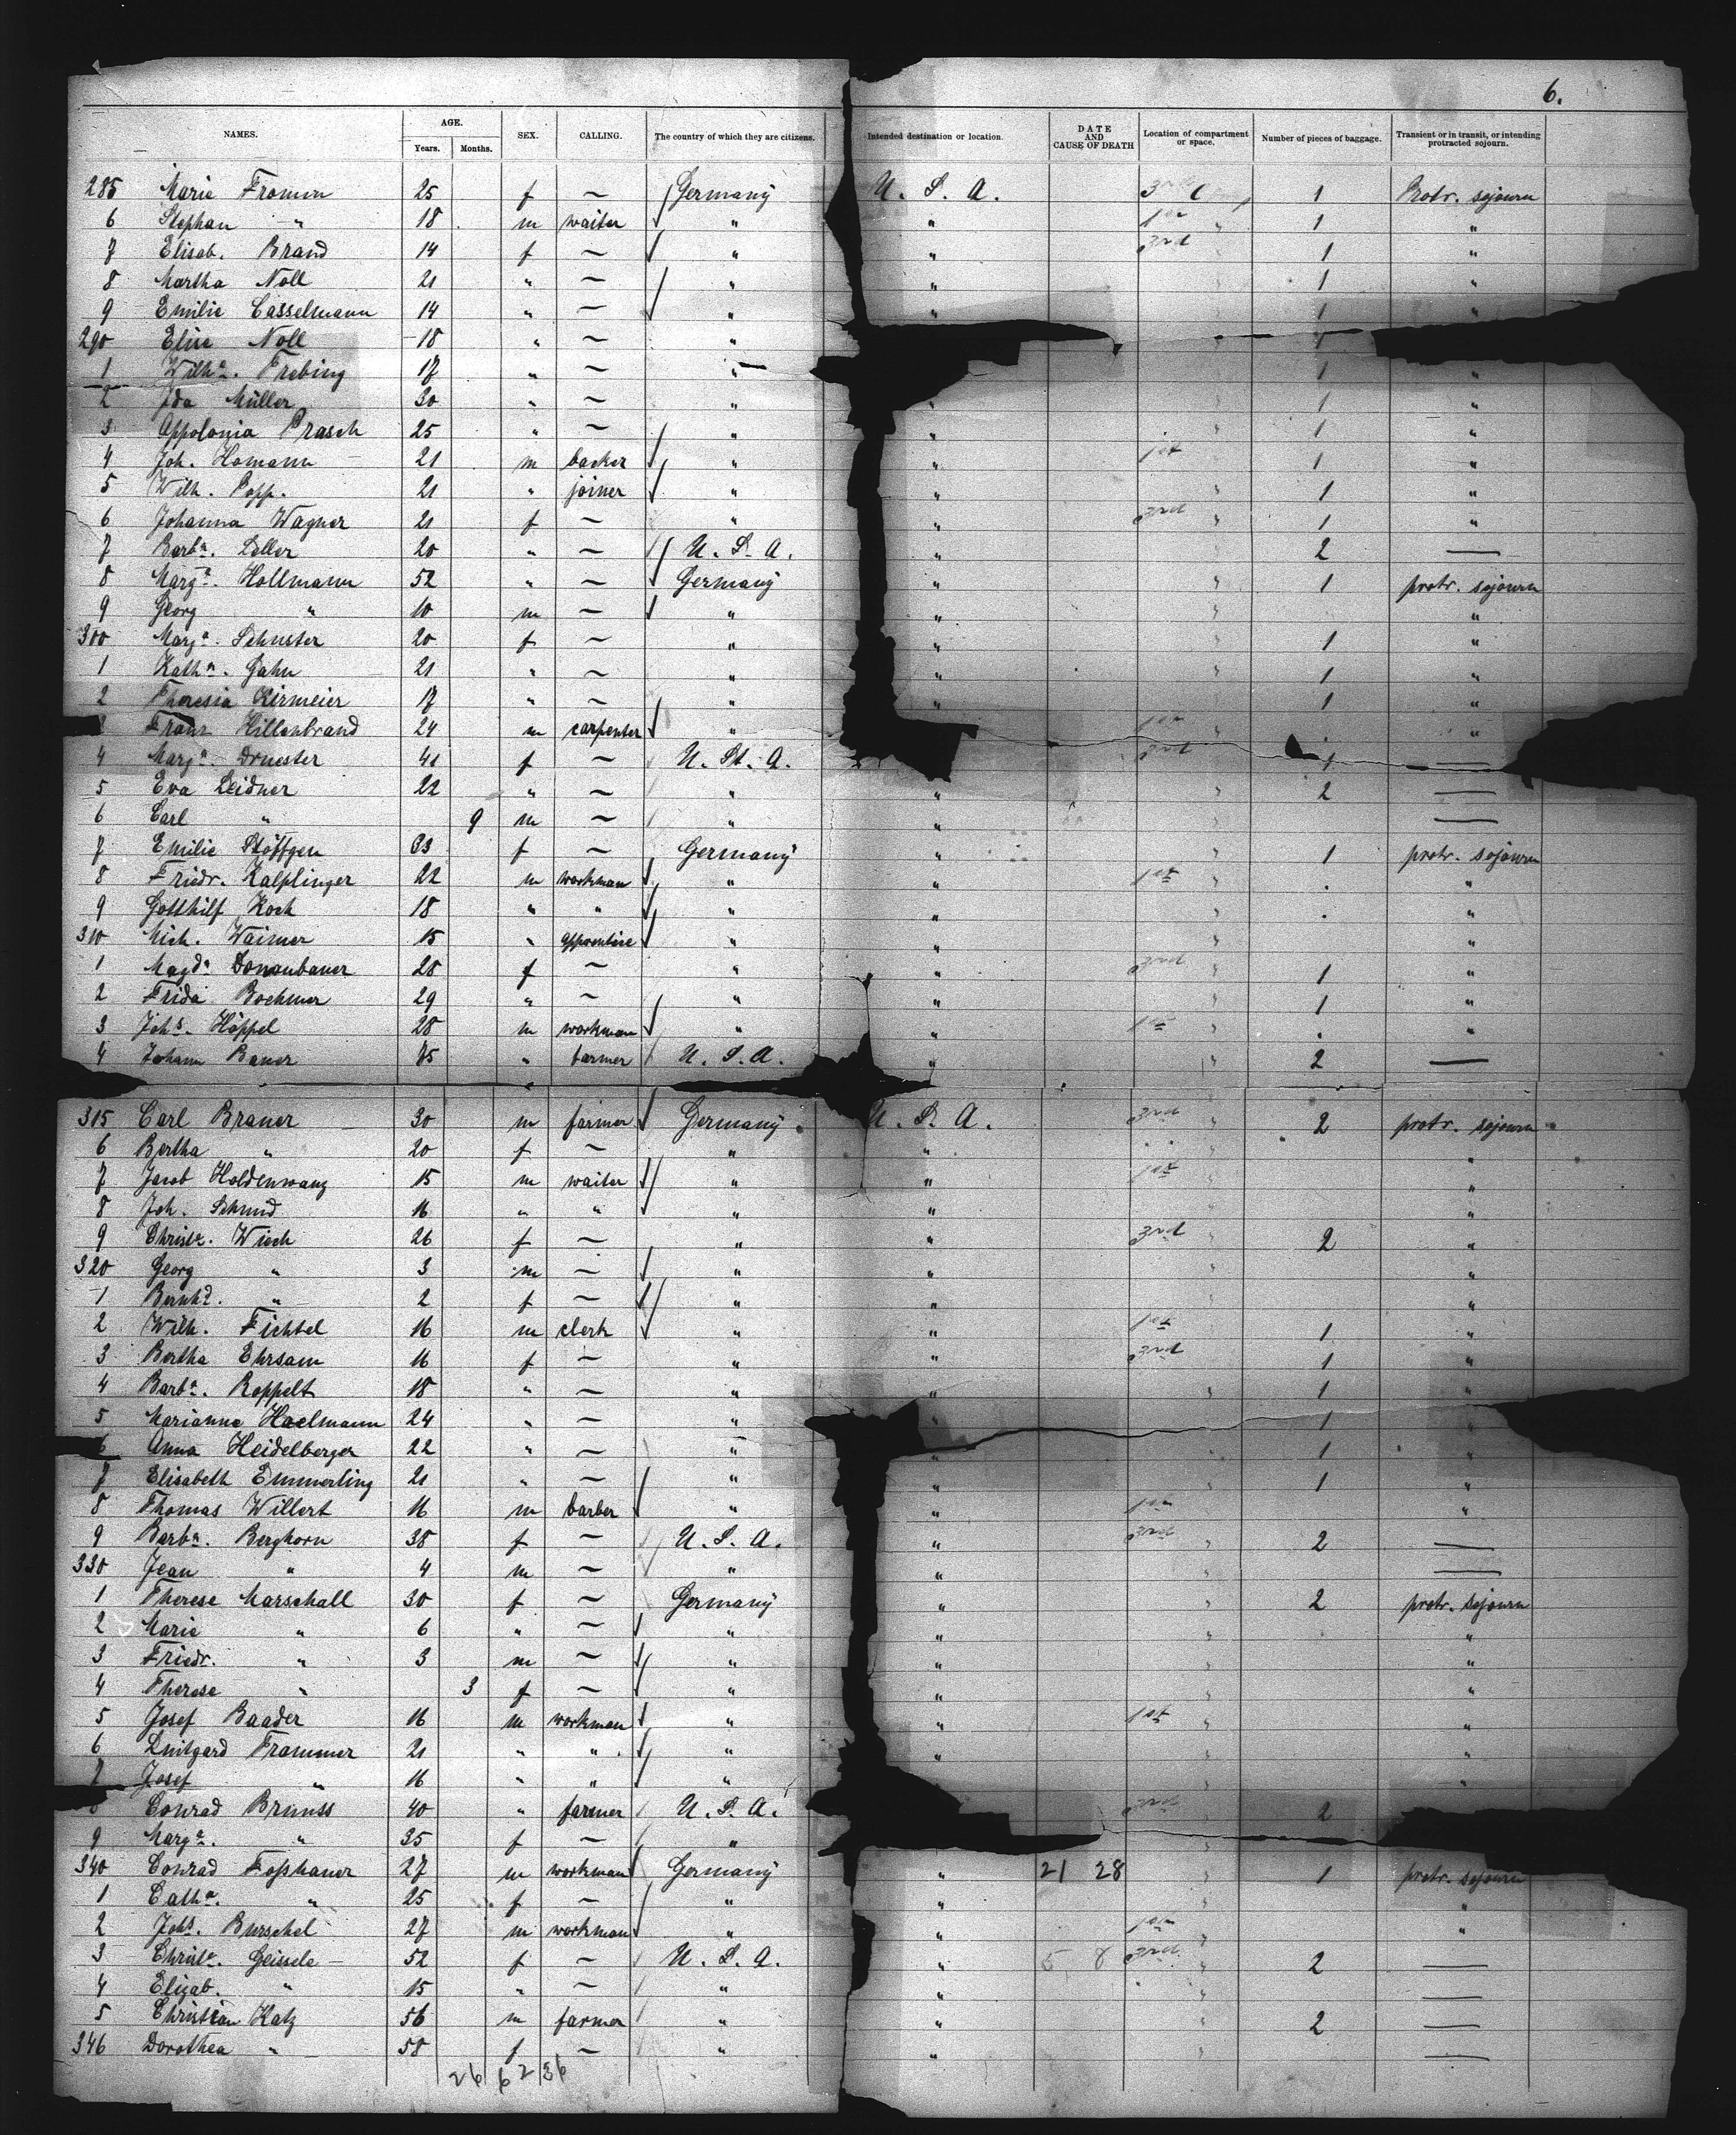 6.
NAMES. AGE. Years. Months. SEX. CALLING. The country of which they are citizens. Intended destination or location. DATE AND CAUSE OF DEATH Location of compartment or space. Number of pieces of baggage. Transient or in transit, or intending protracted sojourn.
285 Marie Fromm 25 f — Germany U. S. A. 3rd C 1 Protr. sojourn
6 Stephan " 18 m waiter " " 1st " 1 "
7 Elisab. Brand 14 f — " " 3rd 1 "
8 Martha Noll 21 " — " " 1 "
9 Emilie Casselmann 14 " — " " 1 "
290 Elise Noll 18 " — "
1 Wilha. Frebing 17 " — " 1 "
2 Ida Müller 30 " — " " 1 "
3 Appolonia Prasch 25 " — " " 1 "
4 Joh. Homann 21 m backer " " 1st 1 "
5 Wilh. Popp. 21 " joiner " " " 1 "
6 Johanna Wagner 21 f — " " 3rd " 1 "
7 Barba. Zeller 20 " — U. S. A. " 2 —
8 Marga. Hollmann 52 " — Germany " " 1 protr. sojourn
9 Georg " 10 m — " " " "
300 Marga. Schuster 20 f — " " " 1 "
1 Katha. Gahn 21 " — " " " 1 "
2 Theresia Zirmeier 17 " — " " 1 "
3 Franz Hillenbrand 24 m carpenter " 1st " "
4 Marga. 41 f — U. St. A. 3rd 1 —
5 Eva Leidner 22 " — " " " 2 —
6 Carl " 9 m — " " —
7 Emilie Stöffgen 33 f — Germany " " 1 protr. sojourn
8 Friedr. Kalplinger 22 m workman " " 1st " . "
9 Gotthilf Koch 18 " " " " " . "
310 Mich. Waimer 15 " apprentice " " " "
1 Magda. Donaubauer 28 f — " " 3rd 1 "
2 Frida Boehmer 29 " — " " 1 "
3 Johs. Höppel 28 m workman " " 1st . "
4 Johann Bauer " farmer U. S. A. " " 2 —
315 Carl Braner 30 m farmer Germany U. S. A. 3rd " 2 protr. sojourn
6 Bertha " 20 f — " " "
7 Jacob Holdenwang 15 m waiter " " 1st "
8 Joh. Schmid 16 " " " " "
9 Christa. Wiech 26 f — " " 3rd " 2 "
320 Georg " 3 m — " " "
1 Bernhd. " 2 f — " " "
2 Wilh. Fichtel 16 m clerk " " 1st " 1 "
3 Bertha Ehrsam 16 f — " " 3rd 1 "
4 Barba. Roppelt 18 " — " " " 1 "
5 Marianne Haelmann 24 " — " " 1 "
6 Anna Heidelberger 22 " — " " 1 "
7 Elisabeth Emmerling 21 " — " " " 1 "
8 Thomas Willert 16 m barber " " 1st "
9 Barba. Berghorn 38 f — U. S. A. " 3rd " 2 —
330 Jean " 4 m — " " —
1 Therese Marschall 30 f — Germany " " 2 protr. sojourn
2 Marie " 6 " — " " " "
3 Friedr. " 3 m — " " " "
4 Therese " 3 f — " " " "
5 Josef Baader 16 m workman " " 1st " "
6 Luitgard Frammer 21 " " " " "
7 Josef " 16 " " " "
8 Conrad Brunss 40 " farmer U. S. A. 3rd " 2
9 Marga. " 35 f — "
340 Conrad Foshaner 27 m workman Germany " 21 28 " 1 protr. sojourn
1 Catha. " 25 f — " " " "
2 Johs. Burschel 27 m workman " " 1st " "
3 Christa. Geissele 52 f — U. S. A. " 5 8 3rd " 2 —
4 Elizab. " 15 " — " " " —
5 Christian Katz 56 m farmer " " " 2 —
346 Dorothea " 58 f — " " —
26 62 36